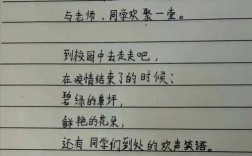 与老师、同学欢聚一堂。
到校园中去走走吧，
在疫情结束了的时候；
碧绿的草坪，
鲜艳的花朵，
还有同学们到处的欢声笑语。